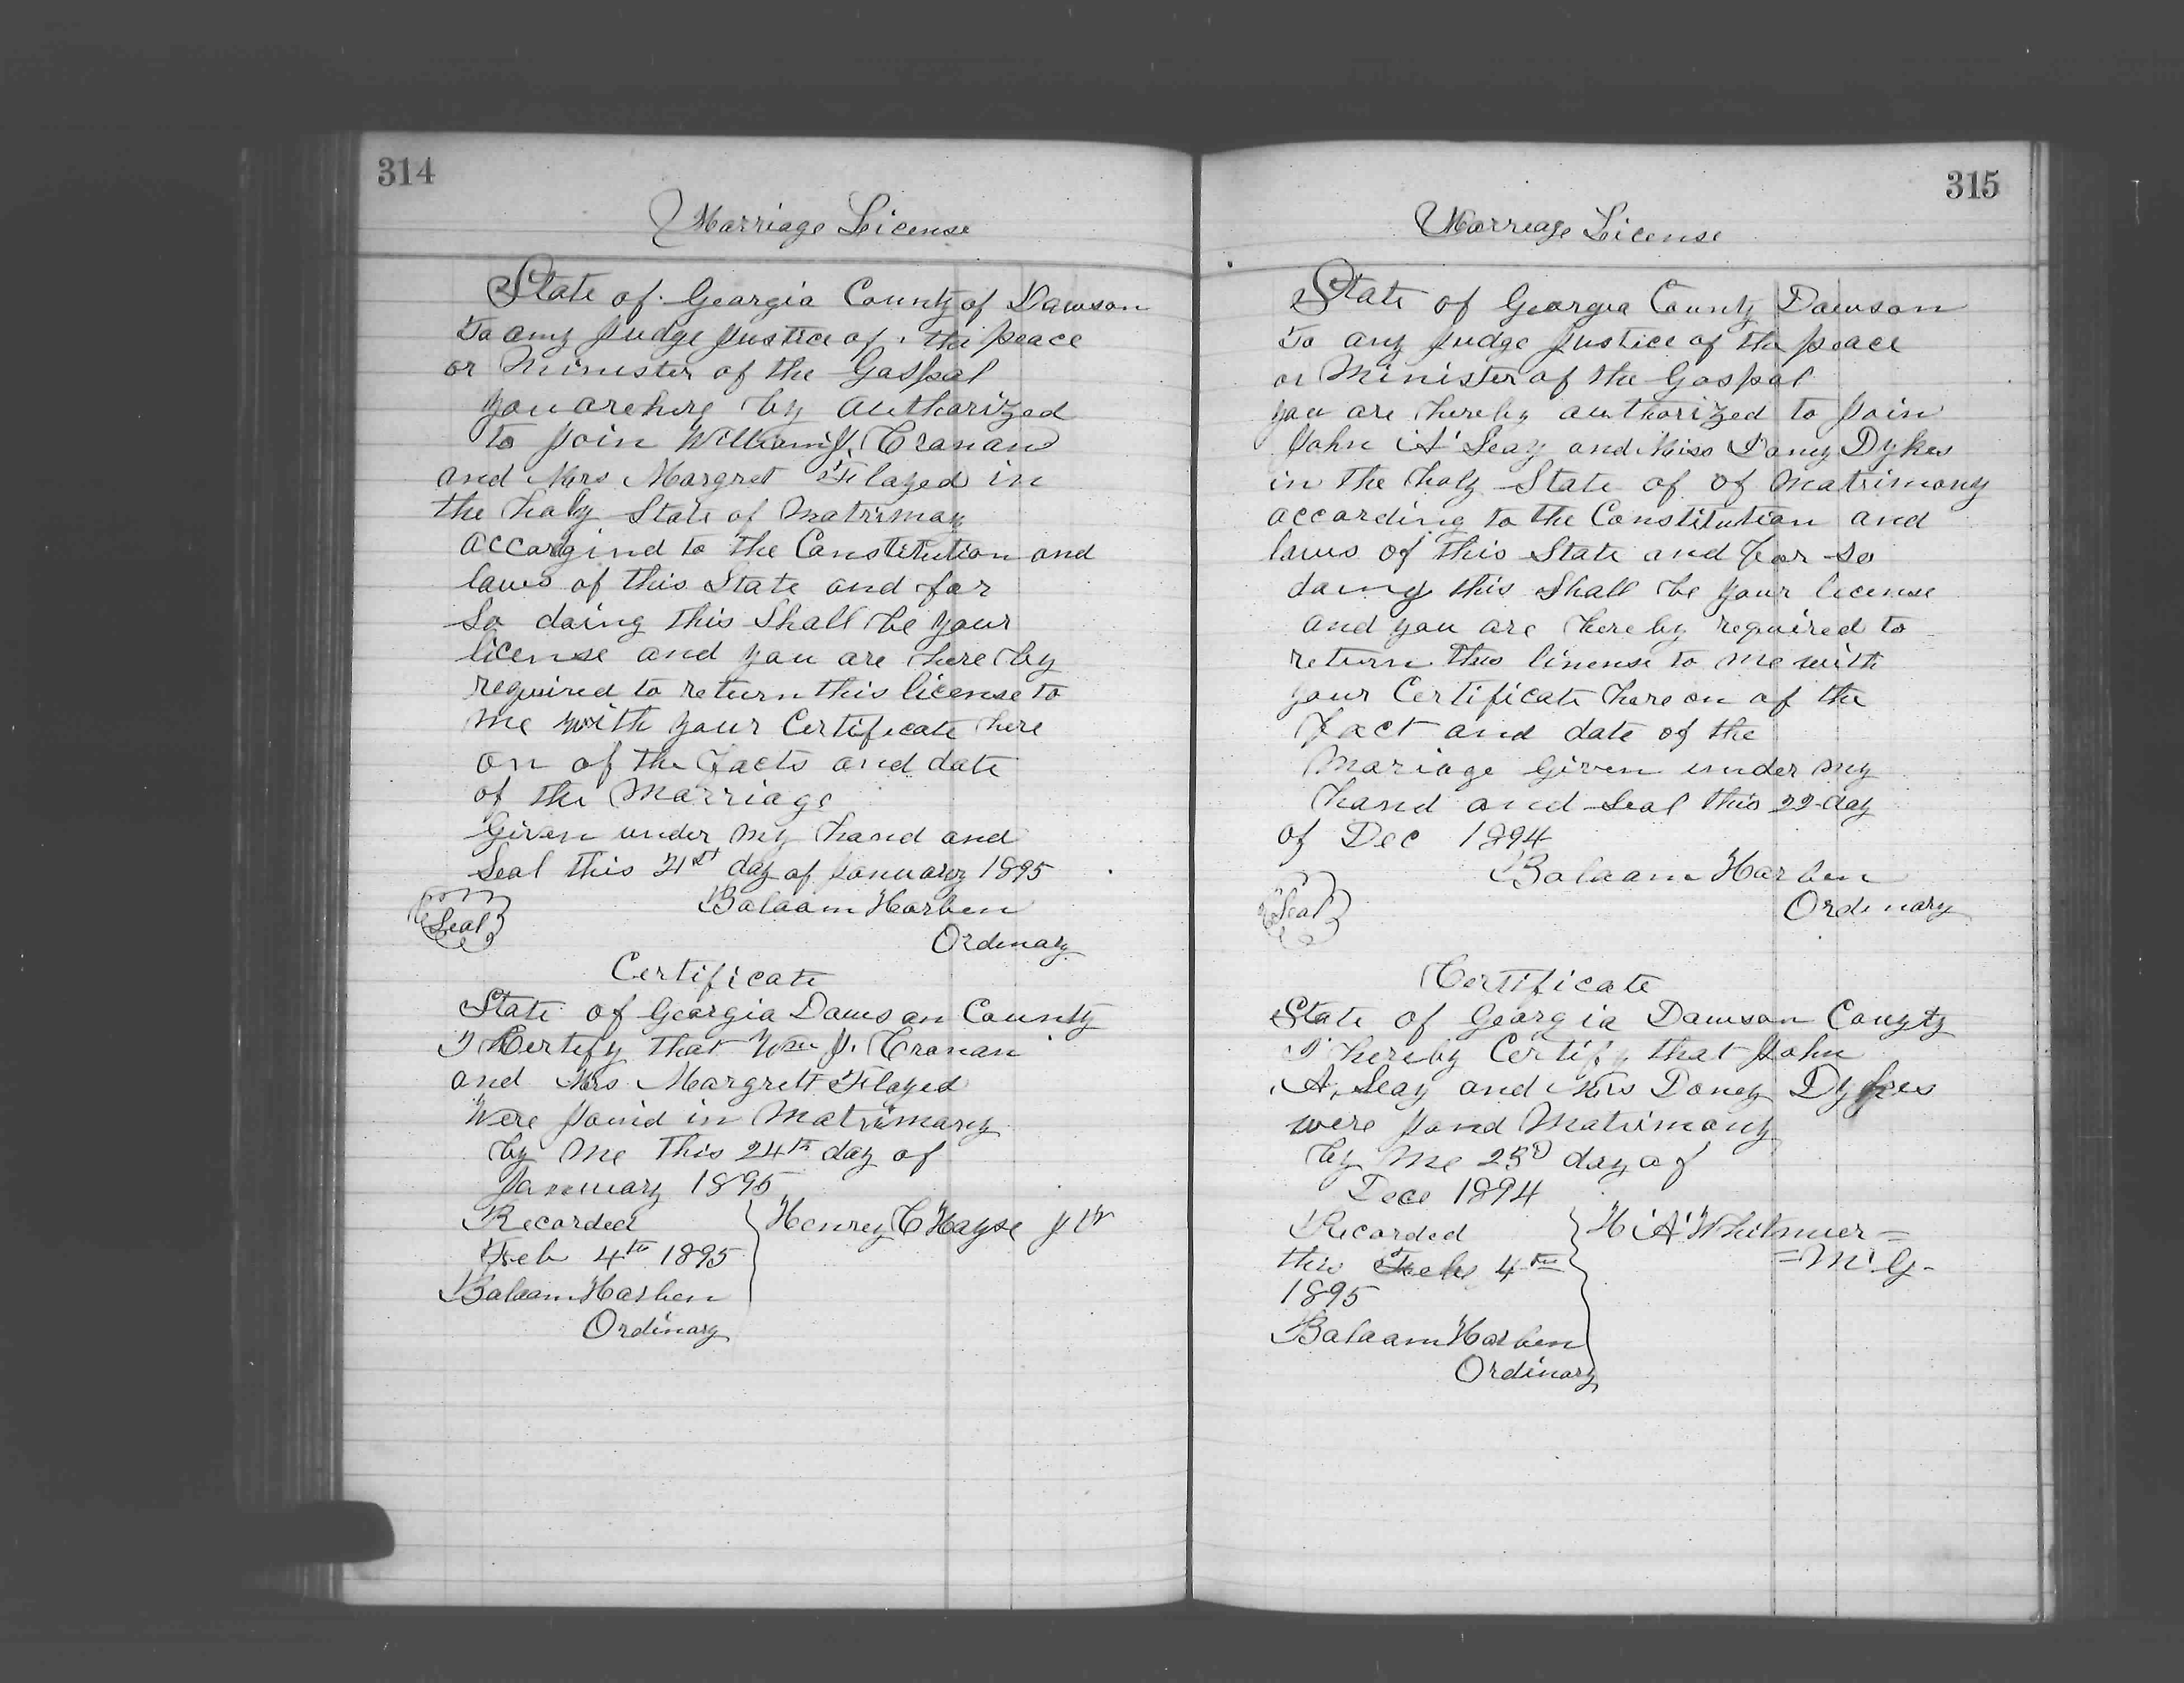 314
Marriage License
State of Georgia County of Dawson
To any Judge Justice of the peace
or Minister of the Gospal
you are here by authorized
to join William J. Cronan
and Mrs Margret Flayed in
the holy State of Matrimay
accordgind to the Constitution and
laws of this State and for
so doing this Shall be your
license and you are here by
required to return this license to
me with your Certificate here
on of the facts and date
of the Marriage
Given under my hand and
Seal this 21st day of January 1895
Seal Balaam Harben
Ordinary
Certificate
State of Georgia Dawson County
I Certify that Wm J. Cronan
and Mrs Margrett Flayed
Were joind in Matrimany
by Me this 24th day of
January 1895
Recorded
Feb 4th 1895
Balaam Harben
Ordinary
Henrey C Hayse J P
315
Marreage License
State of Georgia County Dawson
To any Judge Justice of the peace
or Minister of the Gospal
you are hereby authorized to join
John A Seay and Miss Doney Dykes
in the holy State of of Matrimony
according to the Constitution and
laws of this State and for so
doing this Shall be your license
and you are hereby required to
return this linense to me with
your Certificate hereon of the
fact and date of the
Mariage Given under my
hand and Seal this 22 day
of Dec 1894
Seal Balaam Harben
Ordinary
Certificate
State of Georgia Dawson County
I hereby Certify that John
A. Seay and Mrs Doney Dykes
were jond Matrimony
by Me 23D day of
Dece 1894
Recorded
this Feb 4th
1895
Balaam Harben
Ordinary
H A Whitmer =
= M G -